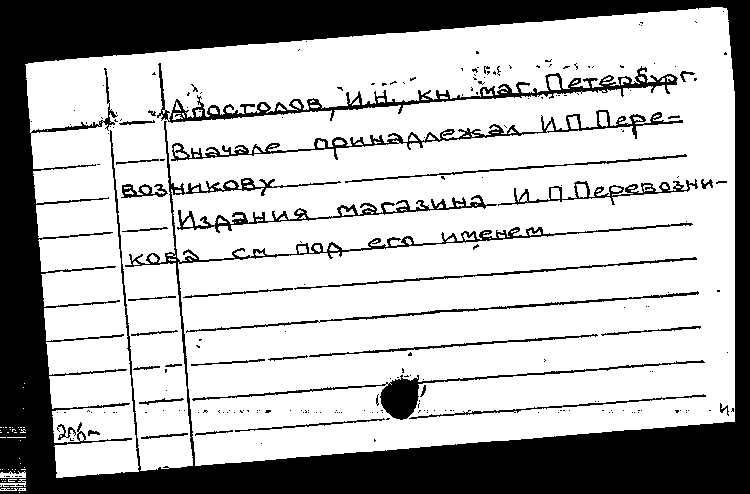 Апостолов, И.Н., кн. маг. Петербург.
Вначале принадлежал И.П. Пере=
возникову.
Издания магазина И.П. Перевозни-
кова см. под его именем